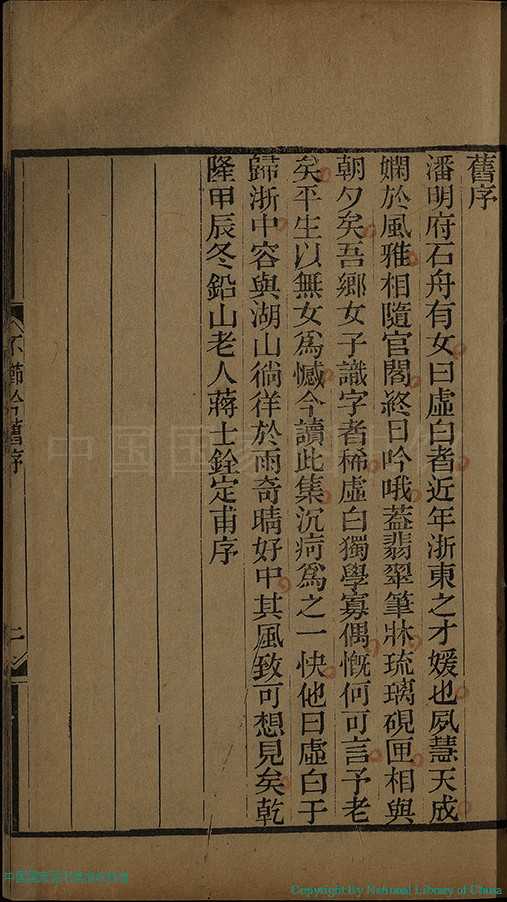 舊序
潘明府石舟有女曰虛白者近年浙東之才媛也夙慧天成
嫻於風雅相隨官閣終日吟哦葢翡翠筆牀琉璃硯匣相與
朝夕矣吾鄉女子識字者稀虛白獨學寡偶慨何可言予老
矣平生以無女爲憾今讀此集沉疴爲之一快他日虛白于
歸浙中容與湖山徜徉於雨奇晴好中其風致可想見矣乾
隆甲辰冬鉛山老人蔣士銓定甫序
不節吟舊序
二
中国国家图书馆
Copyright By National Library of China